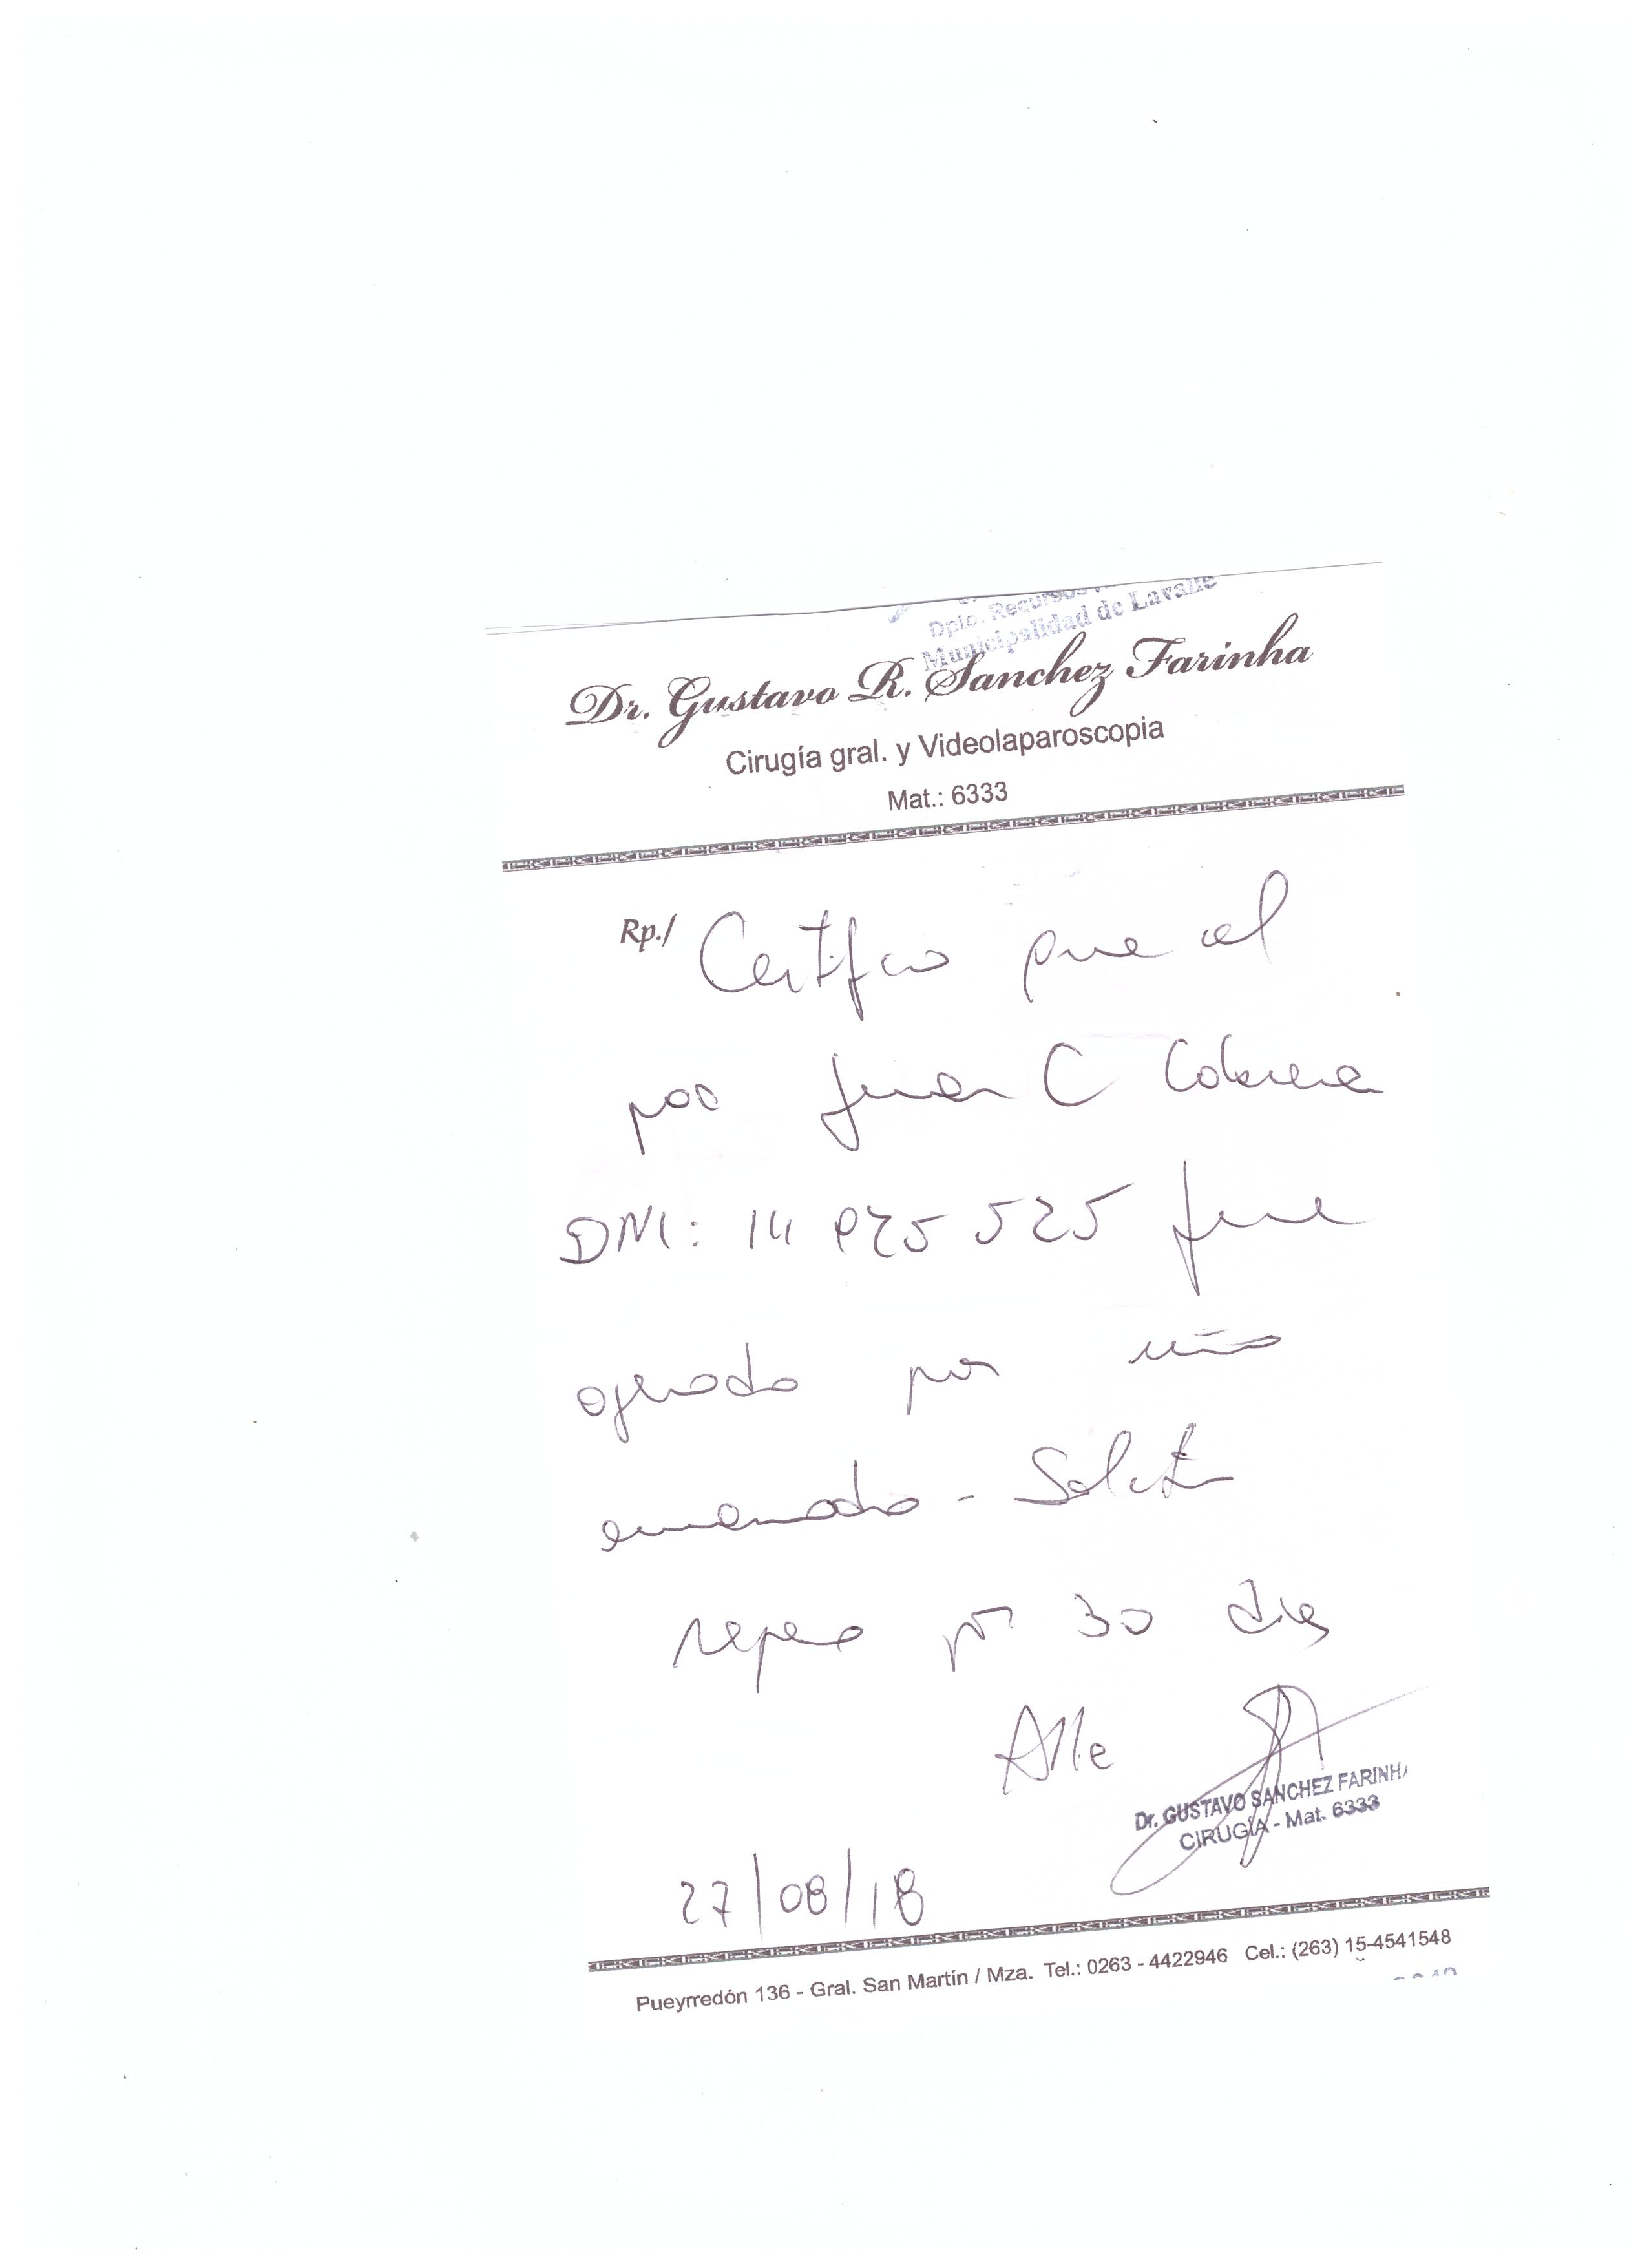 Dpto. Recursos
Municipalidad de Lavalle
Dr. Gustavo R. Sanchez Farinha
Cirugía gral. y Videolaparoscopia
Mat.: 6333
Rp./ Certifico que el
pac Juan C Cabrera
DNI: 14 925 525 fue
operado por uña
encarnada - Solicito
reposo por 30 dias
Atte
Dr. GUSTAVO SANCHEZ FARINHA
CIRUGÍA - Mat. 6333
27/08/18
Pueyrredón 136 - Gral. San Martín / Mza. Tel.: 0263 - 4422946 Cel.: (263) 15-4541548